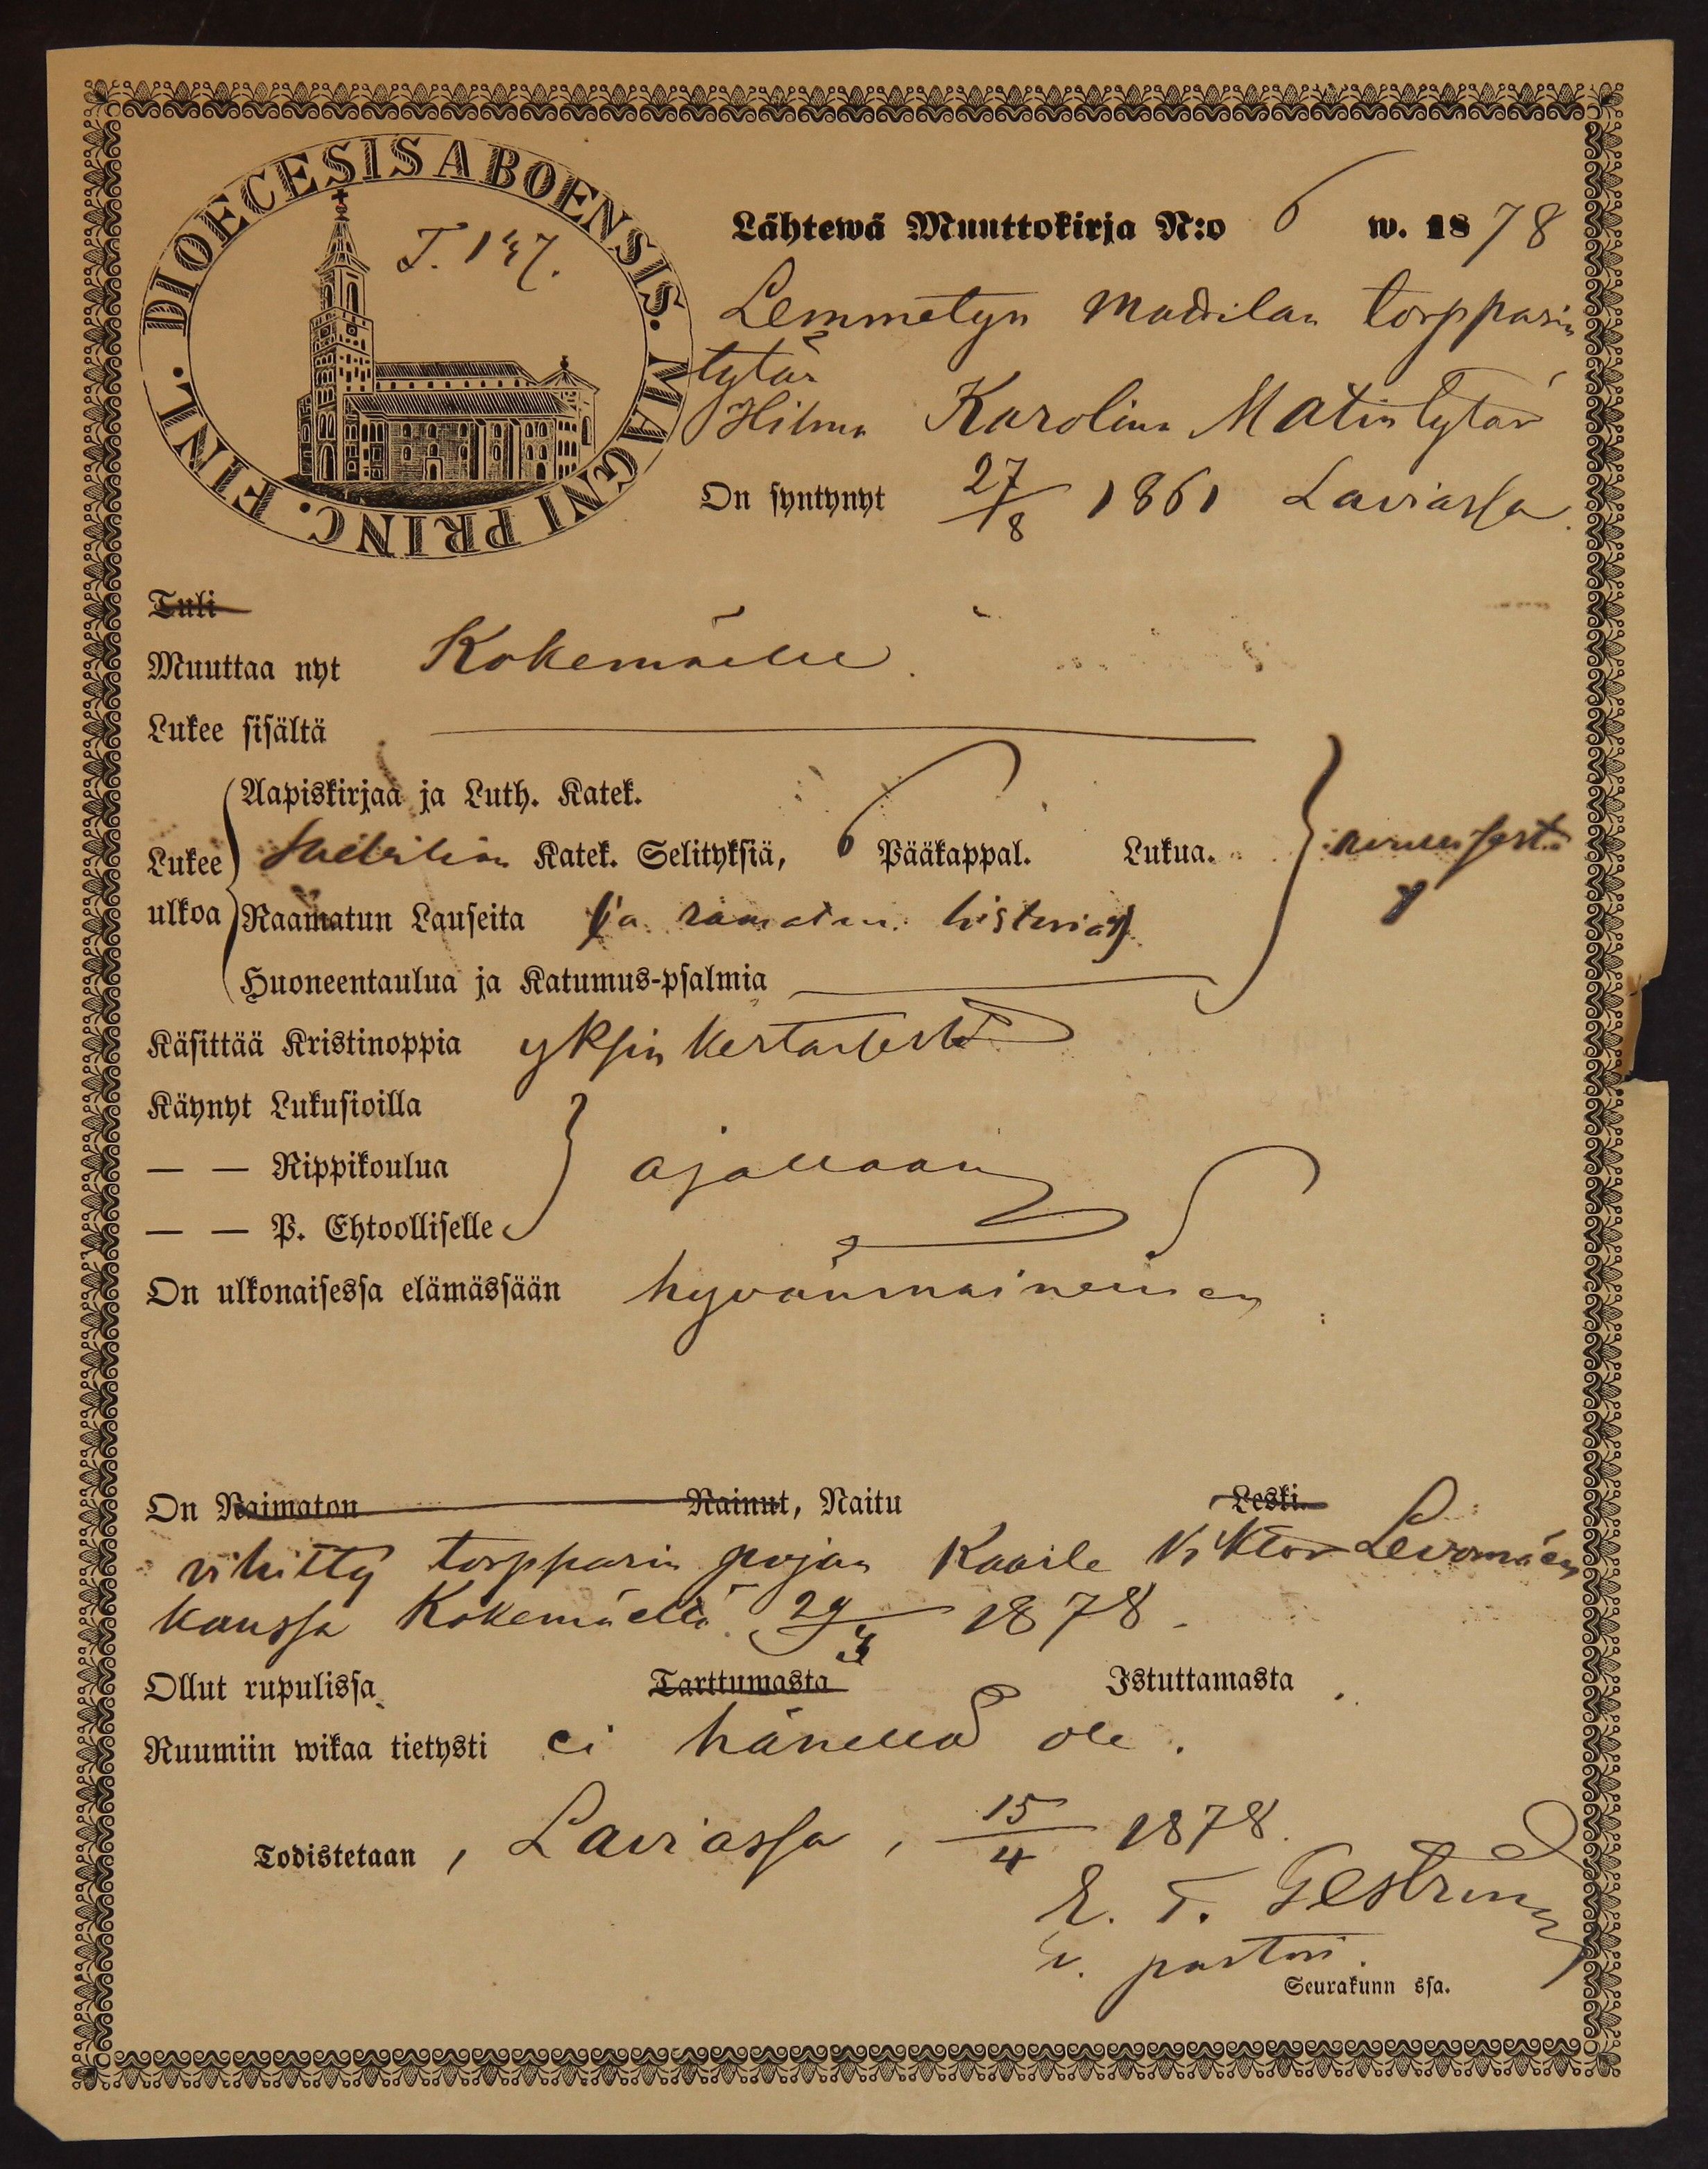 DIOECESIS ABOENSIS. MAGNI PRINC. FINL.
Lähtewä Muuttokirja N:o 6 w. 1878
Lemmetyn torpparin
tytär
Hilma Karolina Matintytär
On syntynyt 27/8 1861 Laviassa.
Tuli
Muuttaa nyt Kokemäelle.
Lukee sisältä
Aapiskirjaa ja Luth. Katek.
Lukee Katek. Selityksiä, 6 Pääkappal. Lukua.
ulkoa Raamatun Lauseita (ja raamatun historiaa)
Huoneentaulua ja Katumus-psalmia
Käsittää Kristinoppia yksinkertaisesti
Käynyt Lukusioilla
— — Rippikoulua ajallaan
— — P. Ehtoolliselle
On ulkonaisessa elämässään hyvänmaineinen
On Naimaton Nainut, Naitu Leski.
vihitty torpparin pojan Kaarle Viktor Levomäen
kanssa Kokemäellä 29/3 1878.
Ollut rupulissa Tarttumasta Istuttamasta
Ruumiin wikaa tietysti ei hänellä ole.
Todistetaan, Laviassa, 15/4 1878.
E. T. Gestrin
v. pastori.
Seurakunn ssa.